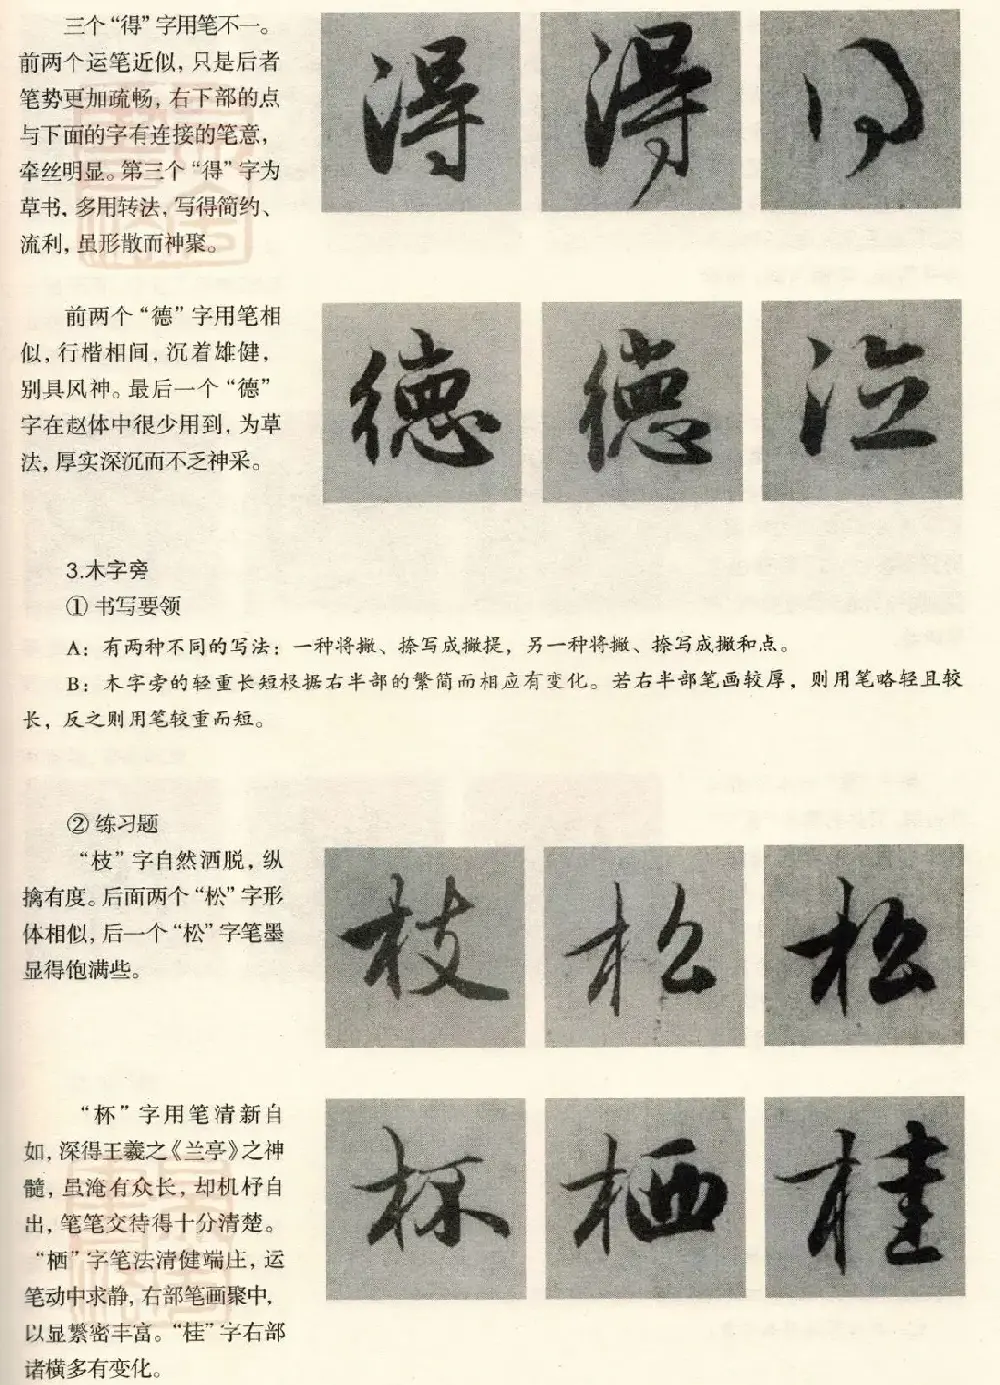 三个“得”字用笔不一。
前两个运笔近似，只是后者
笔势更加疏畅，右下部的点
与下面的字有连接的笔意，
牵丝明显。第三个“得”字为
草书，多用转法，写得简约、
流利，虽形散而神聚。
得 得 得
前两个“德”字用笔相
似，行楷相间，沉着雄健，
别具风神。最后一个“德”
字在赵体中很少用到，为草
法，厚实深沉而不乏神采。
德 德 德
3.木字旁
① 书写要领
A：有两种不同的写法：一种将撇、捺写成撇提，另一种将撇、捺写成撇和点。
B：木字旁的轻重长短根据右半部的繁简而相应有变化。若右半部笔画较厚，则用笔略轻且较
长，反之则用笔较重而短。
② 练习题
“枝”字自然洒脱，纵
擒有度。后面两个“松”字形
体相似，后一个“松”字笔墨
显得饱满些。
枝 松 松
“杯”字用笔清新自
如，深得王羲之《兰亭》之神
髓，虽淹有众长，却机杼自
出，笔笔交待得十分清楚。
“栖”字笔法清健端庄，运
笔动中求静，右部笔画聚中，
以显繁密丰富。“桂”字右部
诸横多有变化。
杯 栖 桂